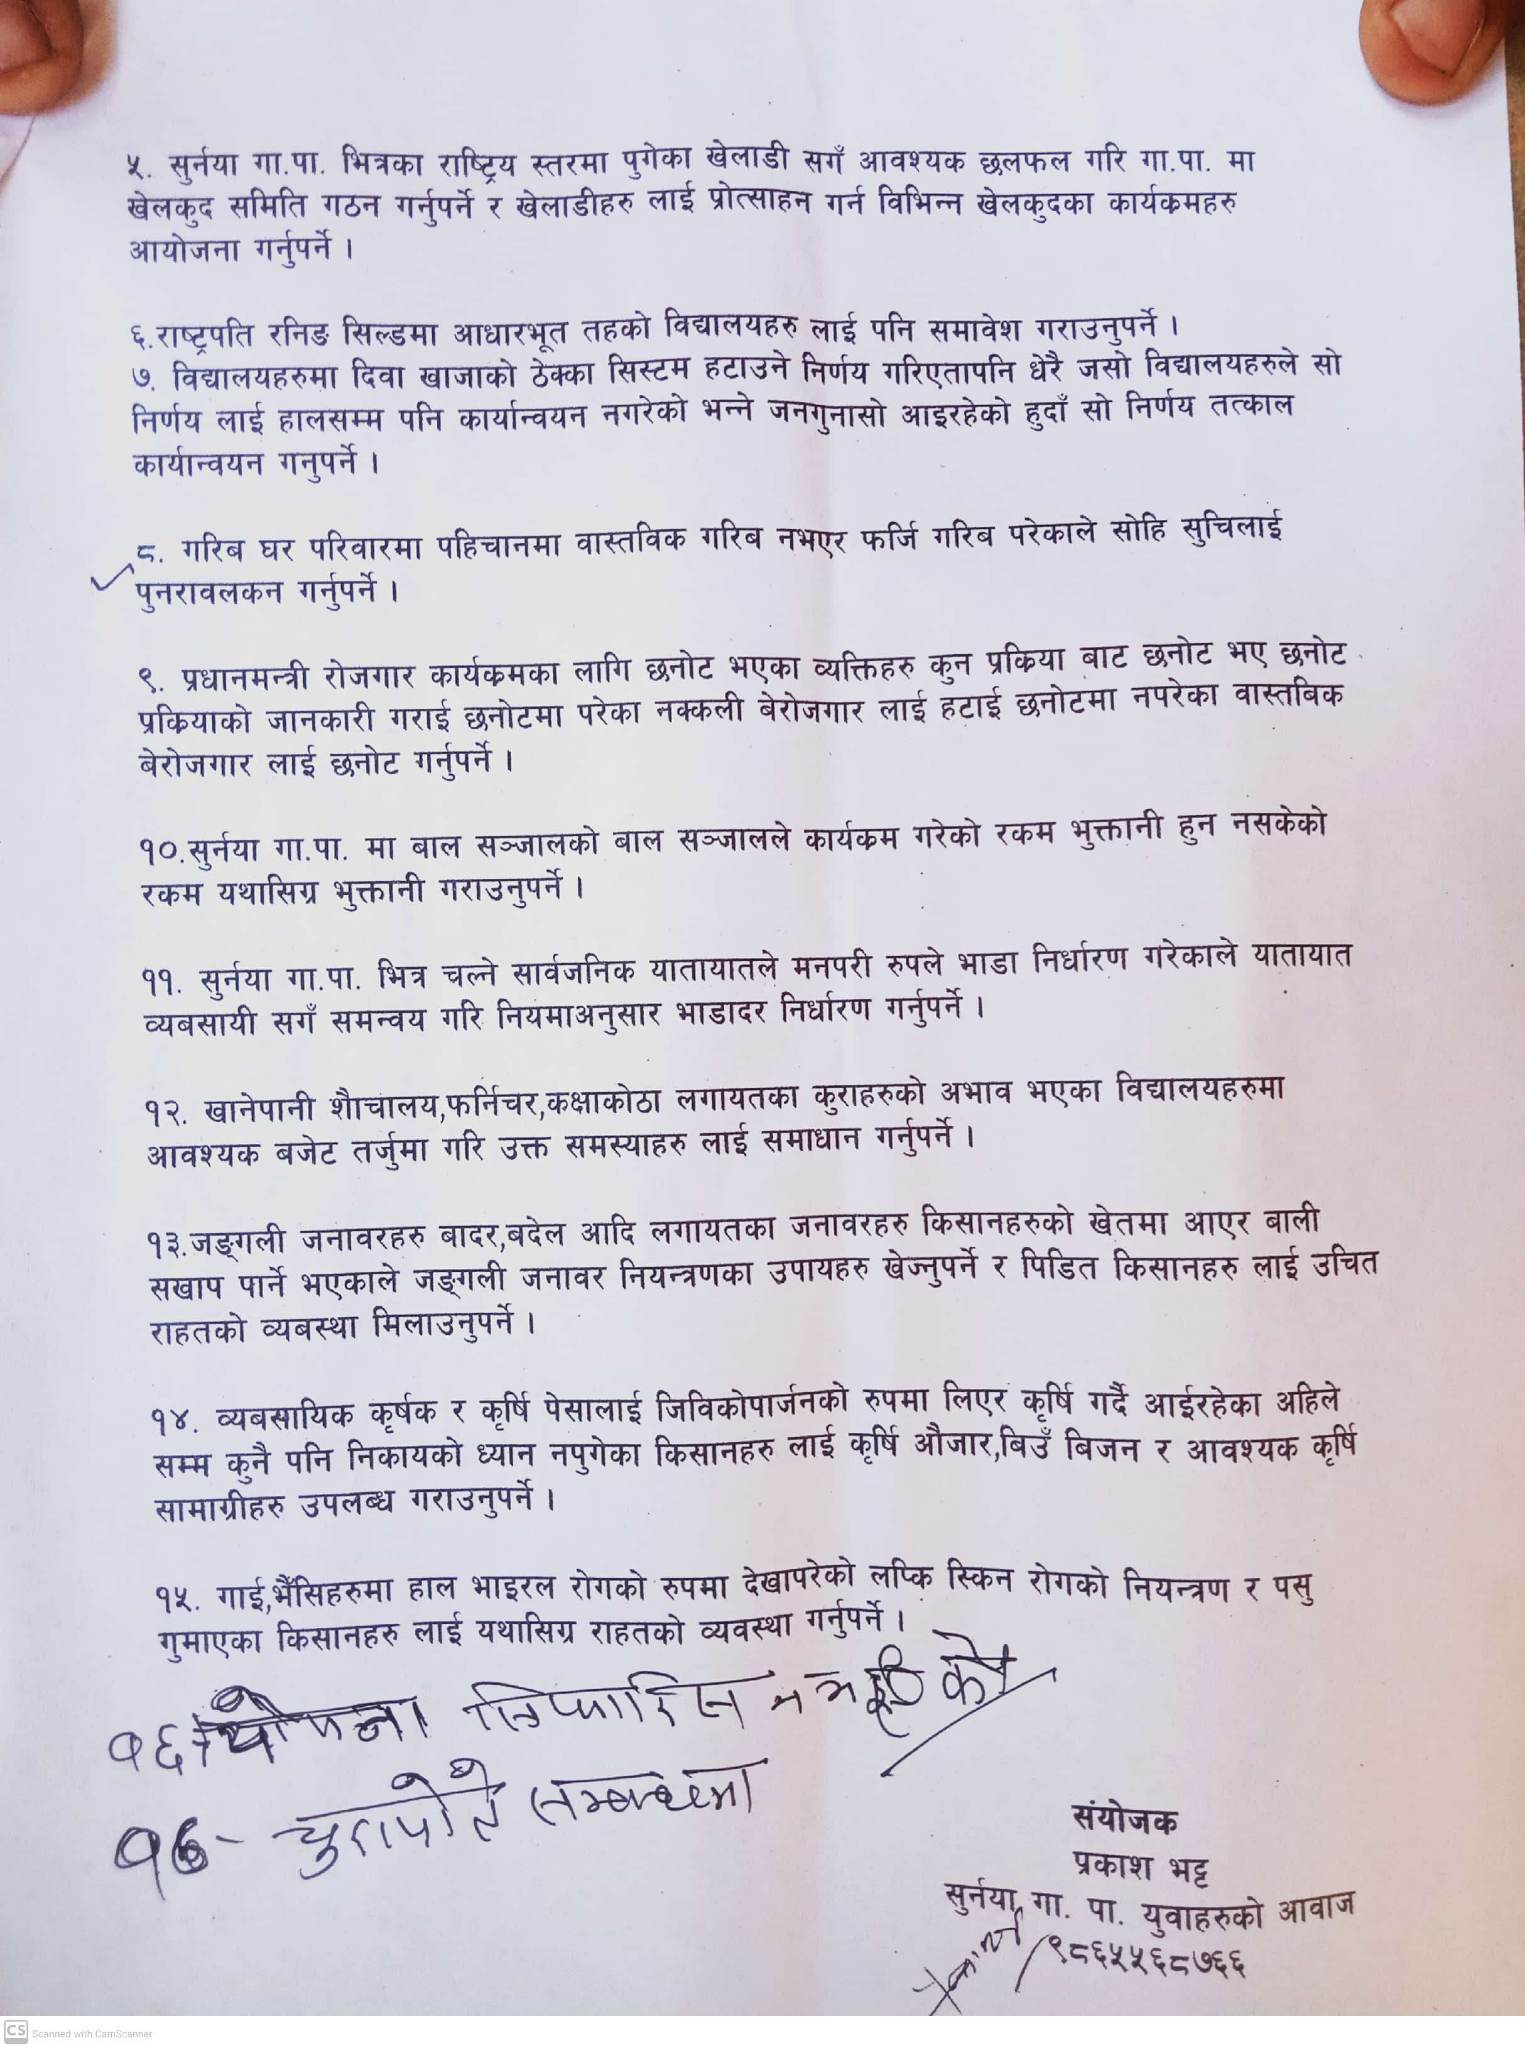 ५. सुर्नया गा.पा. भित्रका राष्ट्रिय स्तरमा पुगेका खेलाडी सगँ आवश्यक छलफल गरि गा.पा. मा
खेलकुद समिति गठन गर्नुपर्ने र खेलाडीहरु लाई प्रोत्साहन गर्न विभिन्न खेलकुदका कार्यकमहरु
आयोजना गर्नुपर्ने ।
६.राष्ट्रपति रनिङ सिल्डमा आधारभूत तहको विद्यालयहरु लाई पनि समावेश गराउनुपर्ने ।
७. विद्यालयहरुमा दिवा खाजाको ठेक्का सिस्टम हटाउने निर्णय गरिएतापनि धेरै जसो विद्यालयहरुले सो
निर्णय लाई हालसम्म पनि कार्यान्वयन नगरेको भन्ने जनगुनासो आइरहेको हुदाँ सो निर्णय तत्काल
कार्यान्वयन गनुपर्ने ।
८. गरिब घर परिवारमा पहिचानमा वास्तविक गरिब नभएर फर्जि गरिब परेकाले सोहि सुचिलाई
पुनरावलकन गर्नुपर्ने ।
९. प्रधानमन्त्री रोजगार कार्यकमका लागि छनोट भएका व्यक्तिहरु कुन प्रकिया बाट छनोट भए छनोट
प्रकियाको जानकारी गराई छनोटमा परेका नक्कली बेरोजगार लाई हटाई छनोटमा नपरेका वास्तबिक
बेरोजगार लाई छनोट गर्नुपर्ने ।
१०.सुर्नया गा.पा. मा बाल सञ्जालको बाल सञ्जालले कार्यकम गरेको रकम भुक्तानी हुन नसकेको
रकम यथासिग्र भुक्तानी गराउनुपर्ने ।
११. सुर्नया गा.पा. भित्र चल्ने सार्वजनिक यातायातले मनपरी रुपले भाडा निर्धारण गरेकाले यातायात
व्यबसायी सगँ समन्वय गरि नियमाअनुसार भाडादर निर्धारण गर्नुपर्ने ।
१२. खानेपानी शैाचालय,फर्निचर,कक्षाकोठा लगायतका कुराहरुको अभाव भएका विद्यालयहरुमा
आवश्यक बजेट तर्जुमा गरि उक्त समस्याहरु लाई समाधान गर्नुपर्ने ।
१३.जङ्गली जनावरहरु बादर,बदेल आदि लगायतका जनावरहरु किसानहरुको खेतमा आएर बाली
सखाप पार्ने भएकाले जङ्गली जनावर नियन्त्रणका उपायहरु खेज्नुपर्ने र पिडित किसानहरु लाई उचित
राहतको व्यबस्था मिलाउनुपर्ने ।
१४. व्यबसायिक कृर्षक र कृर्षि पेसालाई जिविकोपार्जनको रुपमा लिएर कृर्षि गर्दै आईरहेका अहिले
सम्म कुनै पनि निकायको ध्यान नपुगेका किसानहरु लाई कृर्षि औजार,बिउँ बिजन र आवश्यक कृर्षि
सामाग्रीहरु उपलब्ध गराउनुपर्ने ।
१५. गाई,भैँसिहरुमा हाल भाइरल रोगको रुपमा देखापरेको लप्कि स्किन रोगको नियन्त्रण र पसु
गुमाएका किसानहरु लाई यथासिग्र राहतको व्यवस्था गर्नुपर्ने ।
१६ योजना सिफारिस
१७- सम्बन्धमा
संयोजक
प्रकाश भट्ट
सुर्नया गा. पा. युवाहरुको आवाज
९८६५५६८७६६
CS Scanned with CamScanner